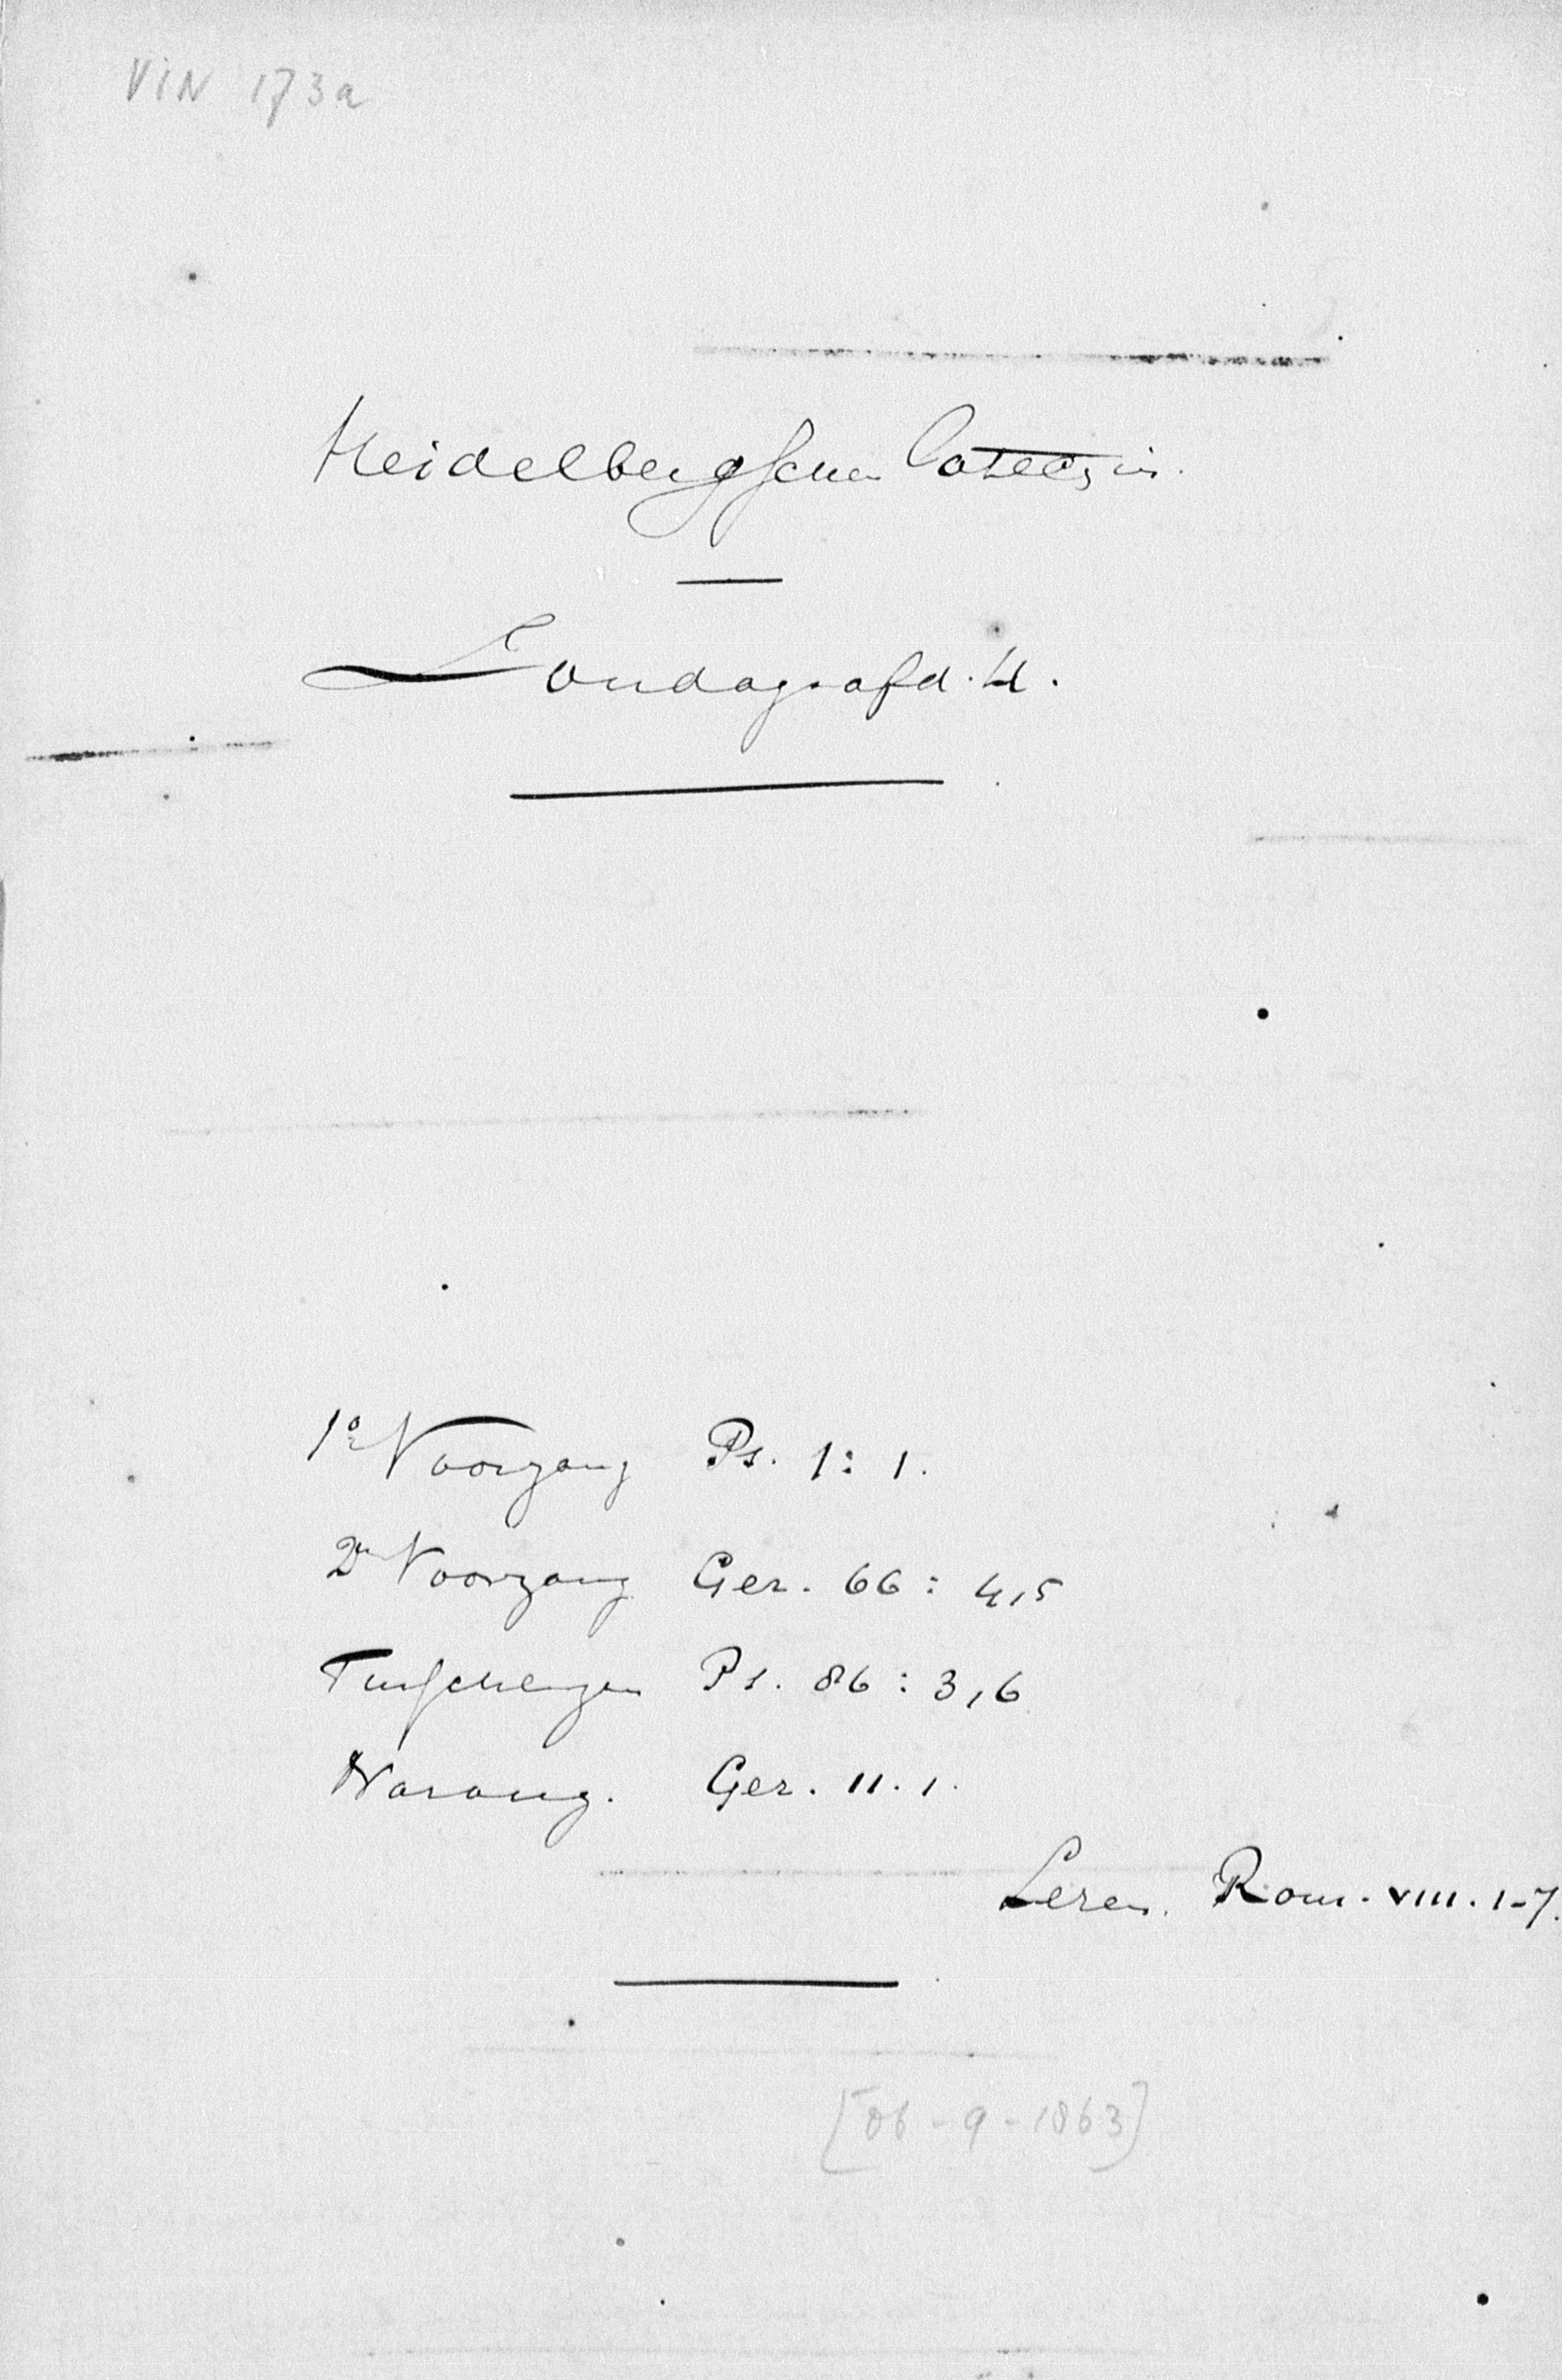 VIN 173a
Heidelbergschen Catechis.
Zondagsafd. 4.
1e Voorzang Ps. 1:1.
2e Voorzang Gez. 66: 4,5
Tusschenzan Ps. 86: 3,6
Nazang. Gez. 11.1.
Lezen. Rom. VIII. 1-7.
[06-9-1863]